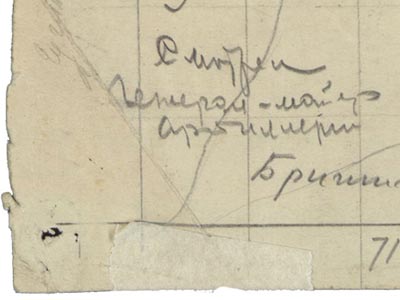 Смотрел
Генерал-майор
артиллерии
71